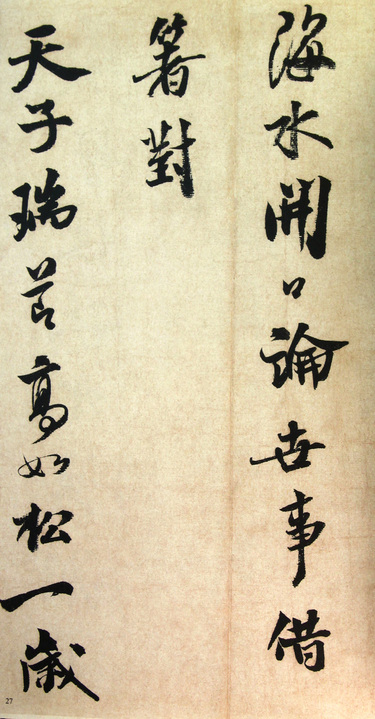 海水開口論世事借
箸對
天子瑞節高如松一歲
27